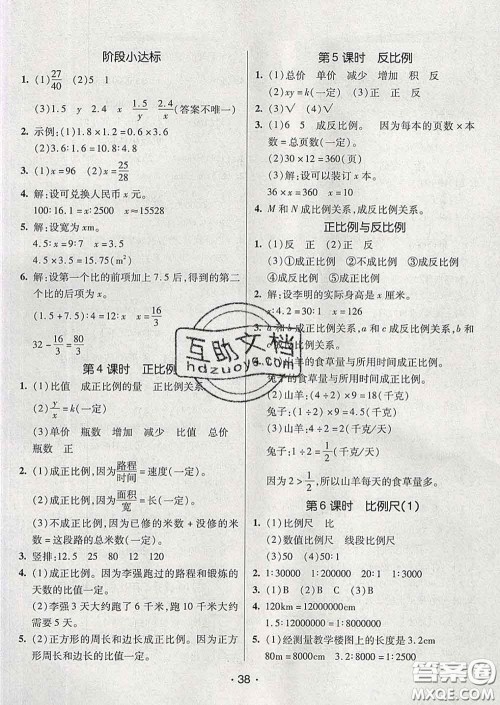 阶段小达标
1. (1)27/40 (2)5 1
(3)18.5 y x 1.5/x y/2.4(答案不唯一)
2. 示例:(1)1.8×1.2=0.6×3.6
(2)3.6:1.8=10.8:5.4
3. (1)x=96 (2)x=25/28
4. 解:设可兑换人民币x元。
100:16.1=x:2500 x=15528
5. 解:设宽为xm。
4.5:x=9:7 x=3.5
4.5×3.5=15.75(m²)
6. 解:设第一个比的前项加上7.5后,得到的第二
个比的后项为x。
x=16/3
32-16/3=80/3
第4课时 正比例
1. (1)比值 成正比例的量 正比例关系
(2)y/x=k(一定)
(3)单价 瓶数 增加 减少 比值 总价
瓶数 正
2. (1)成正比例,因为路程/时间=速度(一定)。
(2)成正比例,因为面积/宽=长(一定)。
(3)不成正比例,因为已修的米数+没修的米数=
这段路的总米数(一定)。
3. 竖排:12.5 25 80 12 120
4. (1)成正比例。因为李强跑过的路程和锻炼的
天数的比值一定。
(2)李强3天大约跑了6千米,7天大约跑了
14千米。
5. (2)正方形的周长和边长成正比例。因为正方
形的周长和边长的比值一定。
第5课时 反比例
1. (1)总价 单价 减少 增加 积 反
(2)xy=k(一定) (3)正 正 反
2. (3)√ (4)√
3. (1)6 5 成反比例。因为每本的页数×本
数=总页数(一定)。
(2)30×12=360(页)
解:设可以装订x本。
36×x=360 x=10
4. M和N成正比例关系,成反比例关系。
正比例与反比例
1. (1)反 正 (2)正 反
(3)①成正比例 ②不成比例 ③成反比例
④成反比例 ⑤成正比例
2. 解:设李明的实际身高是x厘米。
x:4.2=30:1 x=126
3. b成正比例关系,a和c成反比例关系,b和
c成反比例关系。
4. (1)山羊的食草量与所用时间成正比例。
兔子的食草量与所用时间成正比例。
(2)山羊:(4÷2)×9=18(千克)
兔子:(1÷2)×9=4.5(千克)
(3)山羊:4÷2=2(千克/天)
兔子:1÷2=1/2(千克/天)
因为2>1/2,所以山羊每天的食草量多。
第6课时 比例尺(1)
1. (1)比例尺 比
(2)数值比例尺 线段比例尺
(3)50 (4)50:1
2. 1:30000 20:1 1:8000000
3. 1:30000000
4. 120km=12000000cm
15:12000000=1:800000
5. (1)经测量教学楼图上的长度是3.2cm
80m=8000cm 3.2:8000=1:2500
互助文档
hdzuoye.com
· 38 ·
答案圈
MXQE.COM